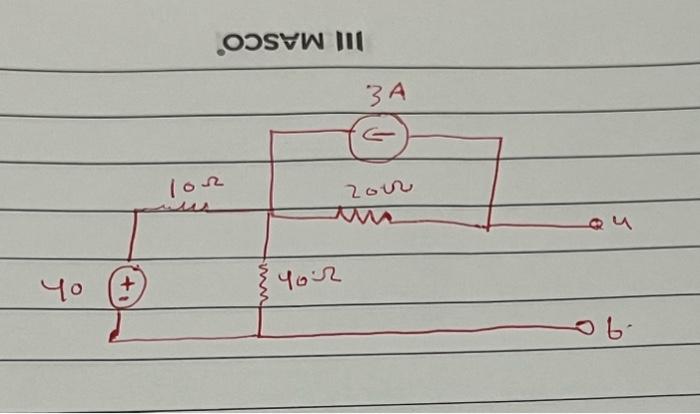 III MASCO
3A
10Ω
20Ω
a
40
+
-
40Ω
b